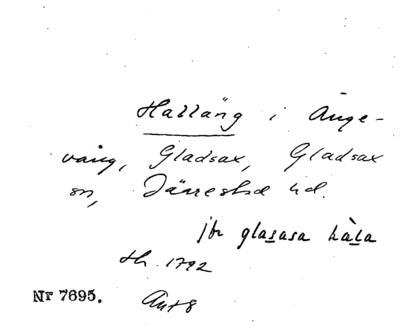 Halläng i Änge-
vång, Gladsax, Gladsax
sn, Järrestad hd.
jfr glasasa hàla
th. 1792
Nr 7695.